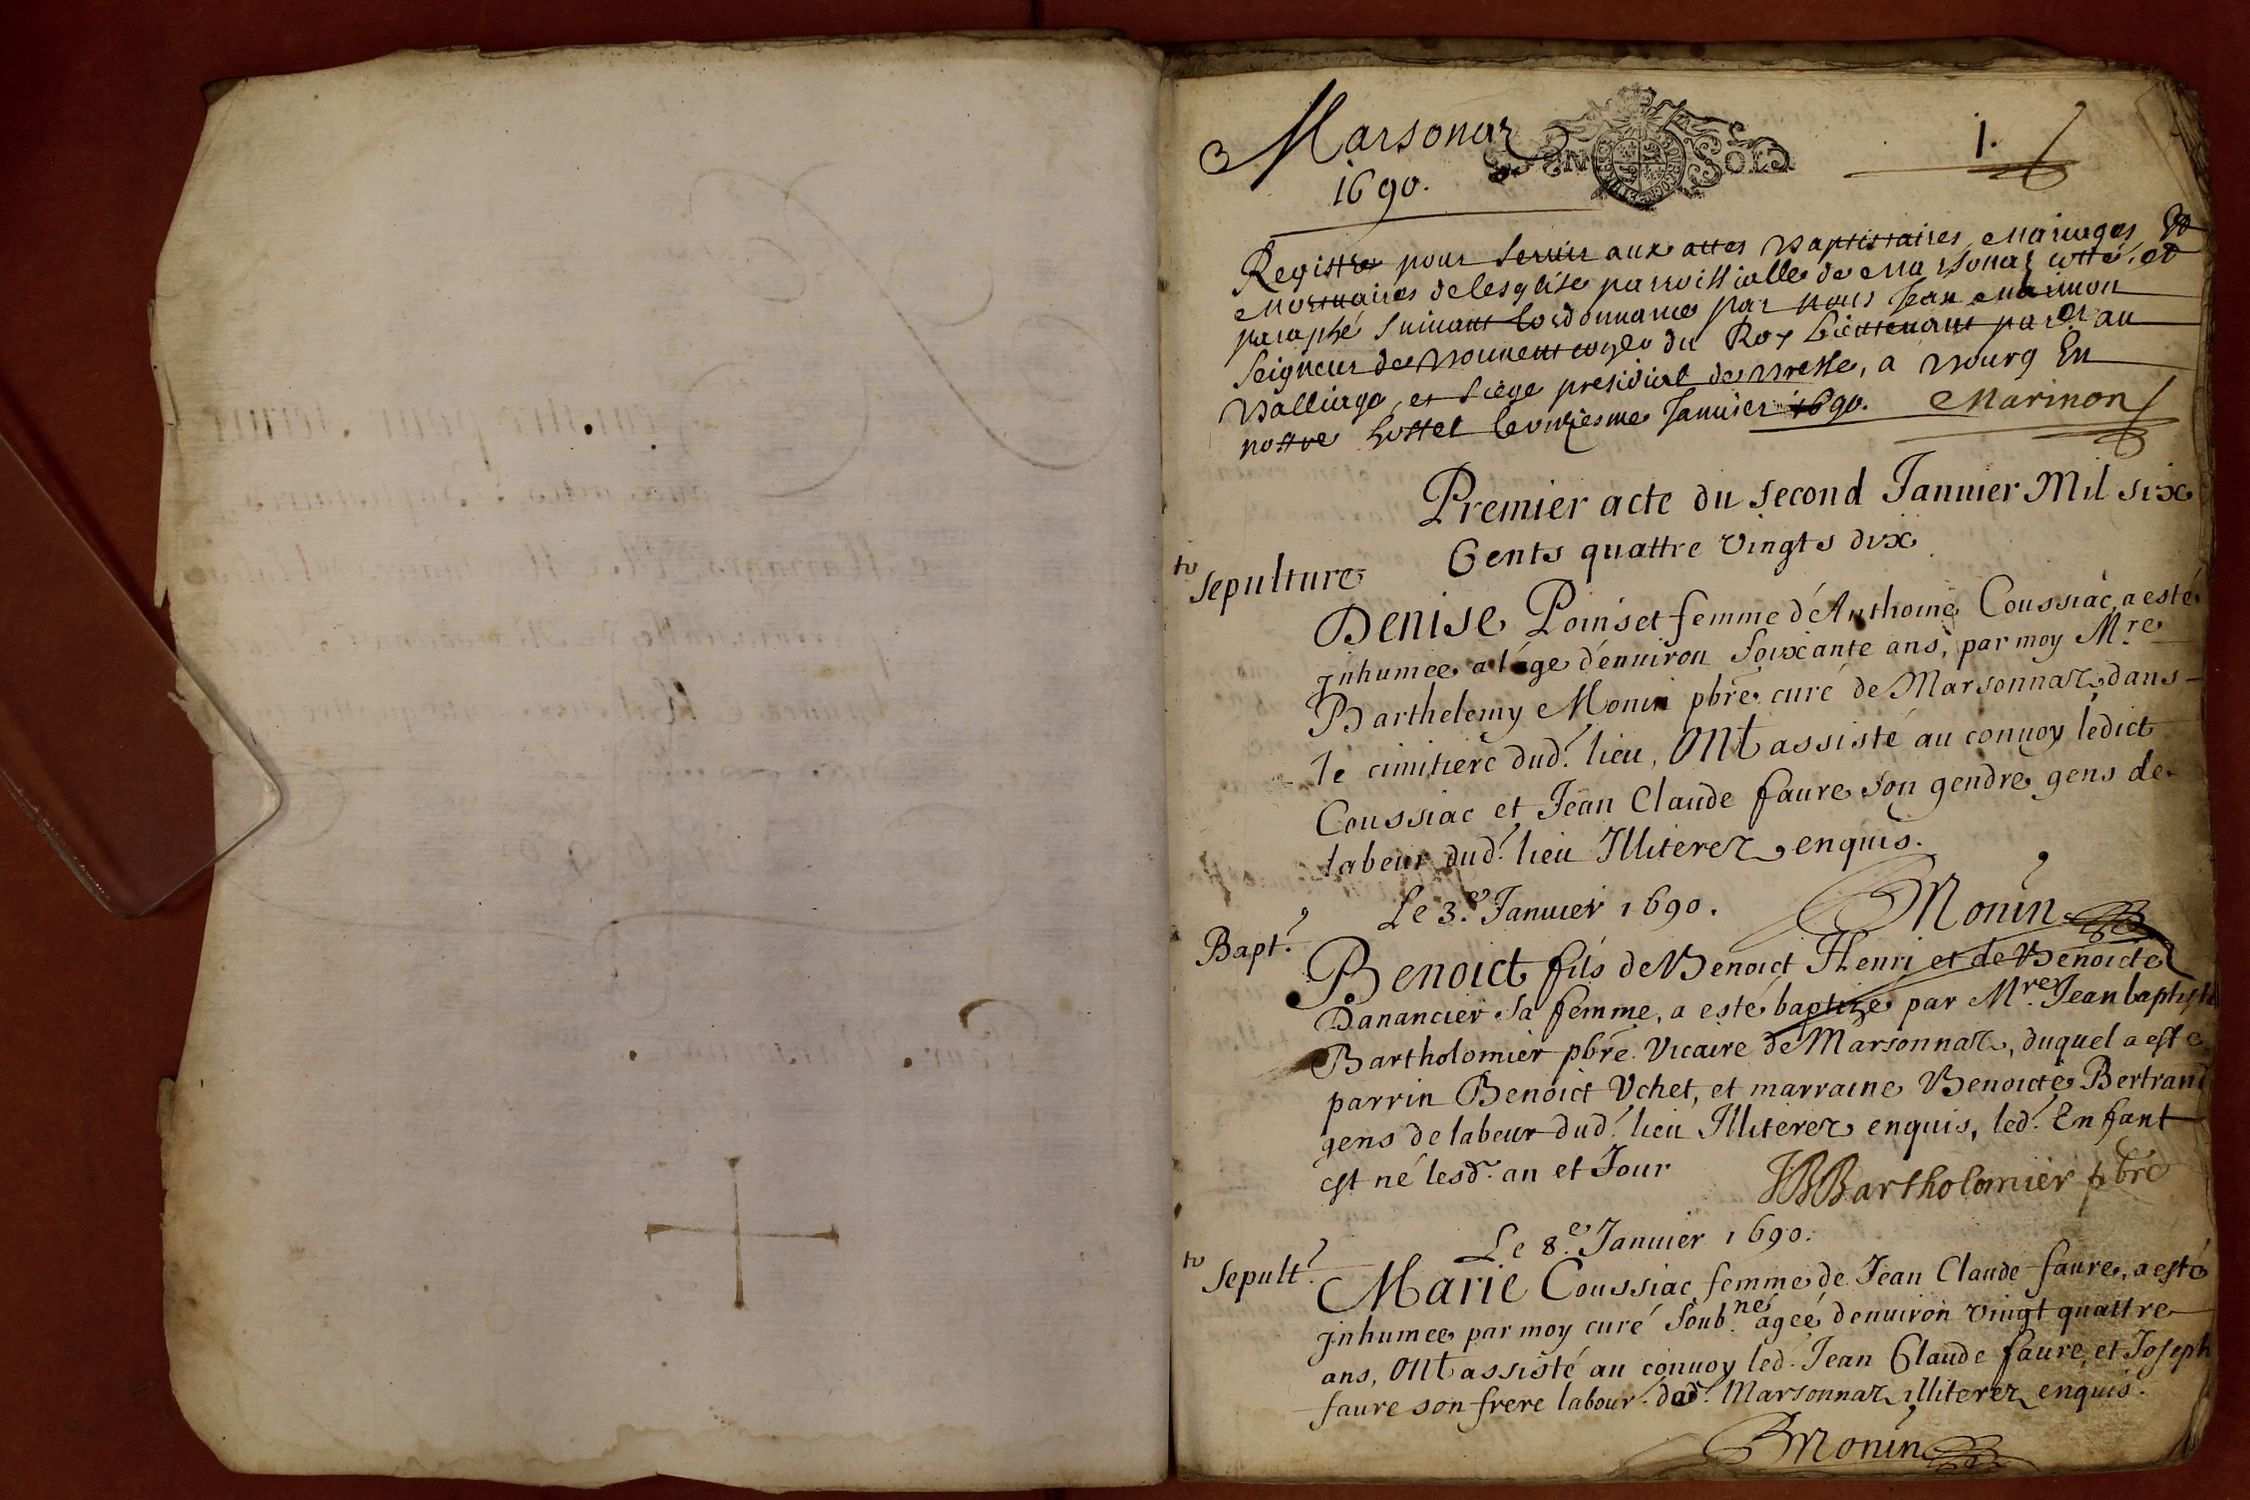 Marsonaz
1690.
EN SOL
1.
Registre pour servir aux actes Baptistaires Mariages Et
Mortuaires de lesglise parroissialle de Marsonaz cotté, et
paraphé suivant lordonnance par nous Jean Marinon
Seigneur de du Roy Lieutenant par au
Balliage, et siege presidial de Bresse, a Bourg En
nostre hostel le Janvier 1690. Marinon
Premier acte du second Januier Mil six
Cents quattre vingts dix
to
sepulture
Denise Poinset femme d'Anthoine Coussiac, a esté
Inhumee a l'age d'enuiron soixante ans, par moy Mre
Barthelemy Monin pbre curé de Marsonnaz dans
le cimitiere dud. lieu, Ont assisté au conuoy ledict
Coussiac et Jean Claude faure son gendre gens de
labeur dud. lieu Illiterez enquis.
Monin
Le 3.e Januier 1690.
Bapt.
Benoict fils de Benoict Henri et de Benoicte
Danancier sa femme, a esté baptize par Mre Jean baptiste
Bartholomier pbre Vicaire de Marsonnaz, duquel a esté
parrin Benoict Vchet, et marraine Benoicte Bertrand
gens de labeur dud. lieu Illiterez enquis, led. Enfant
est né lesd. an et Jour
JBBartholomier pbre
Le 8.e Januier 1690.
to
Sepult.
Marie Coussiac femme de Jean Claude faure, a esté
Inhumee par moy curé soub.ne ageé denuiron vingt quattre
ans, Ont assisté au conuoy led. Jean Claude faure, et Joseph
faure son frere labour. dud. Marsonnaz illiterez enquis.
Monin